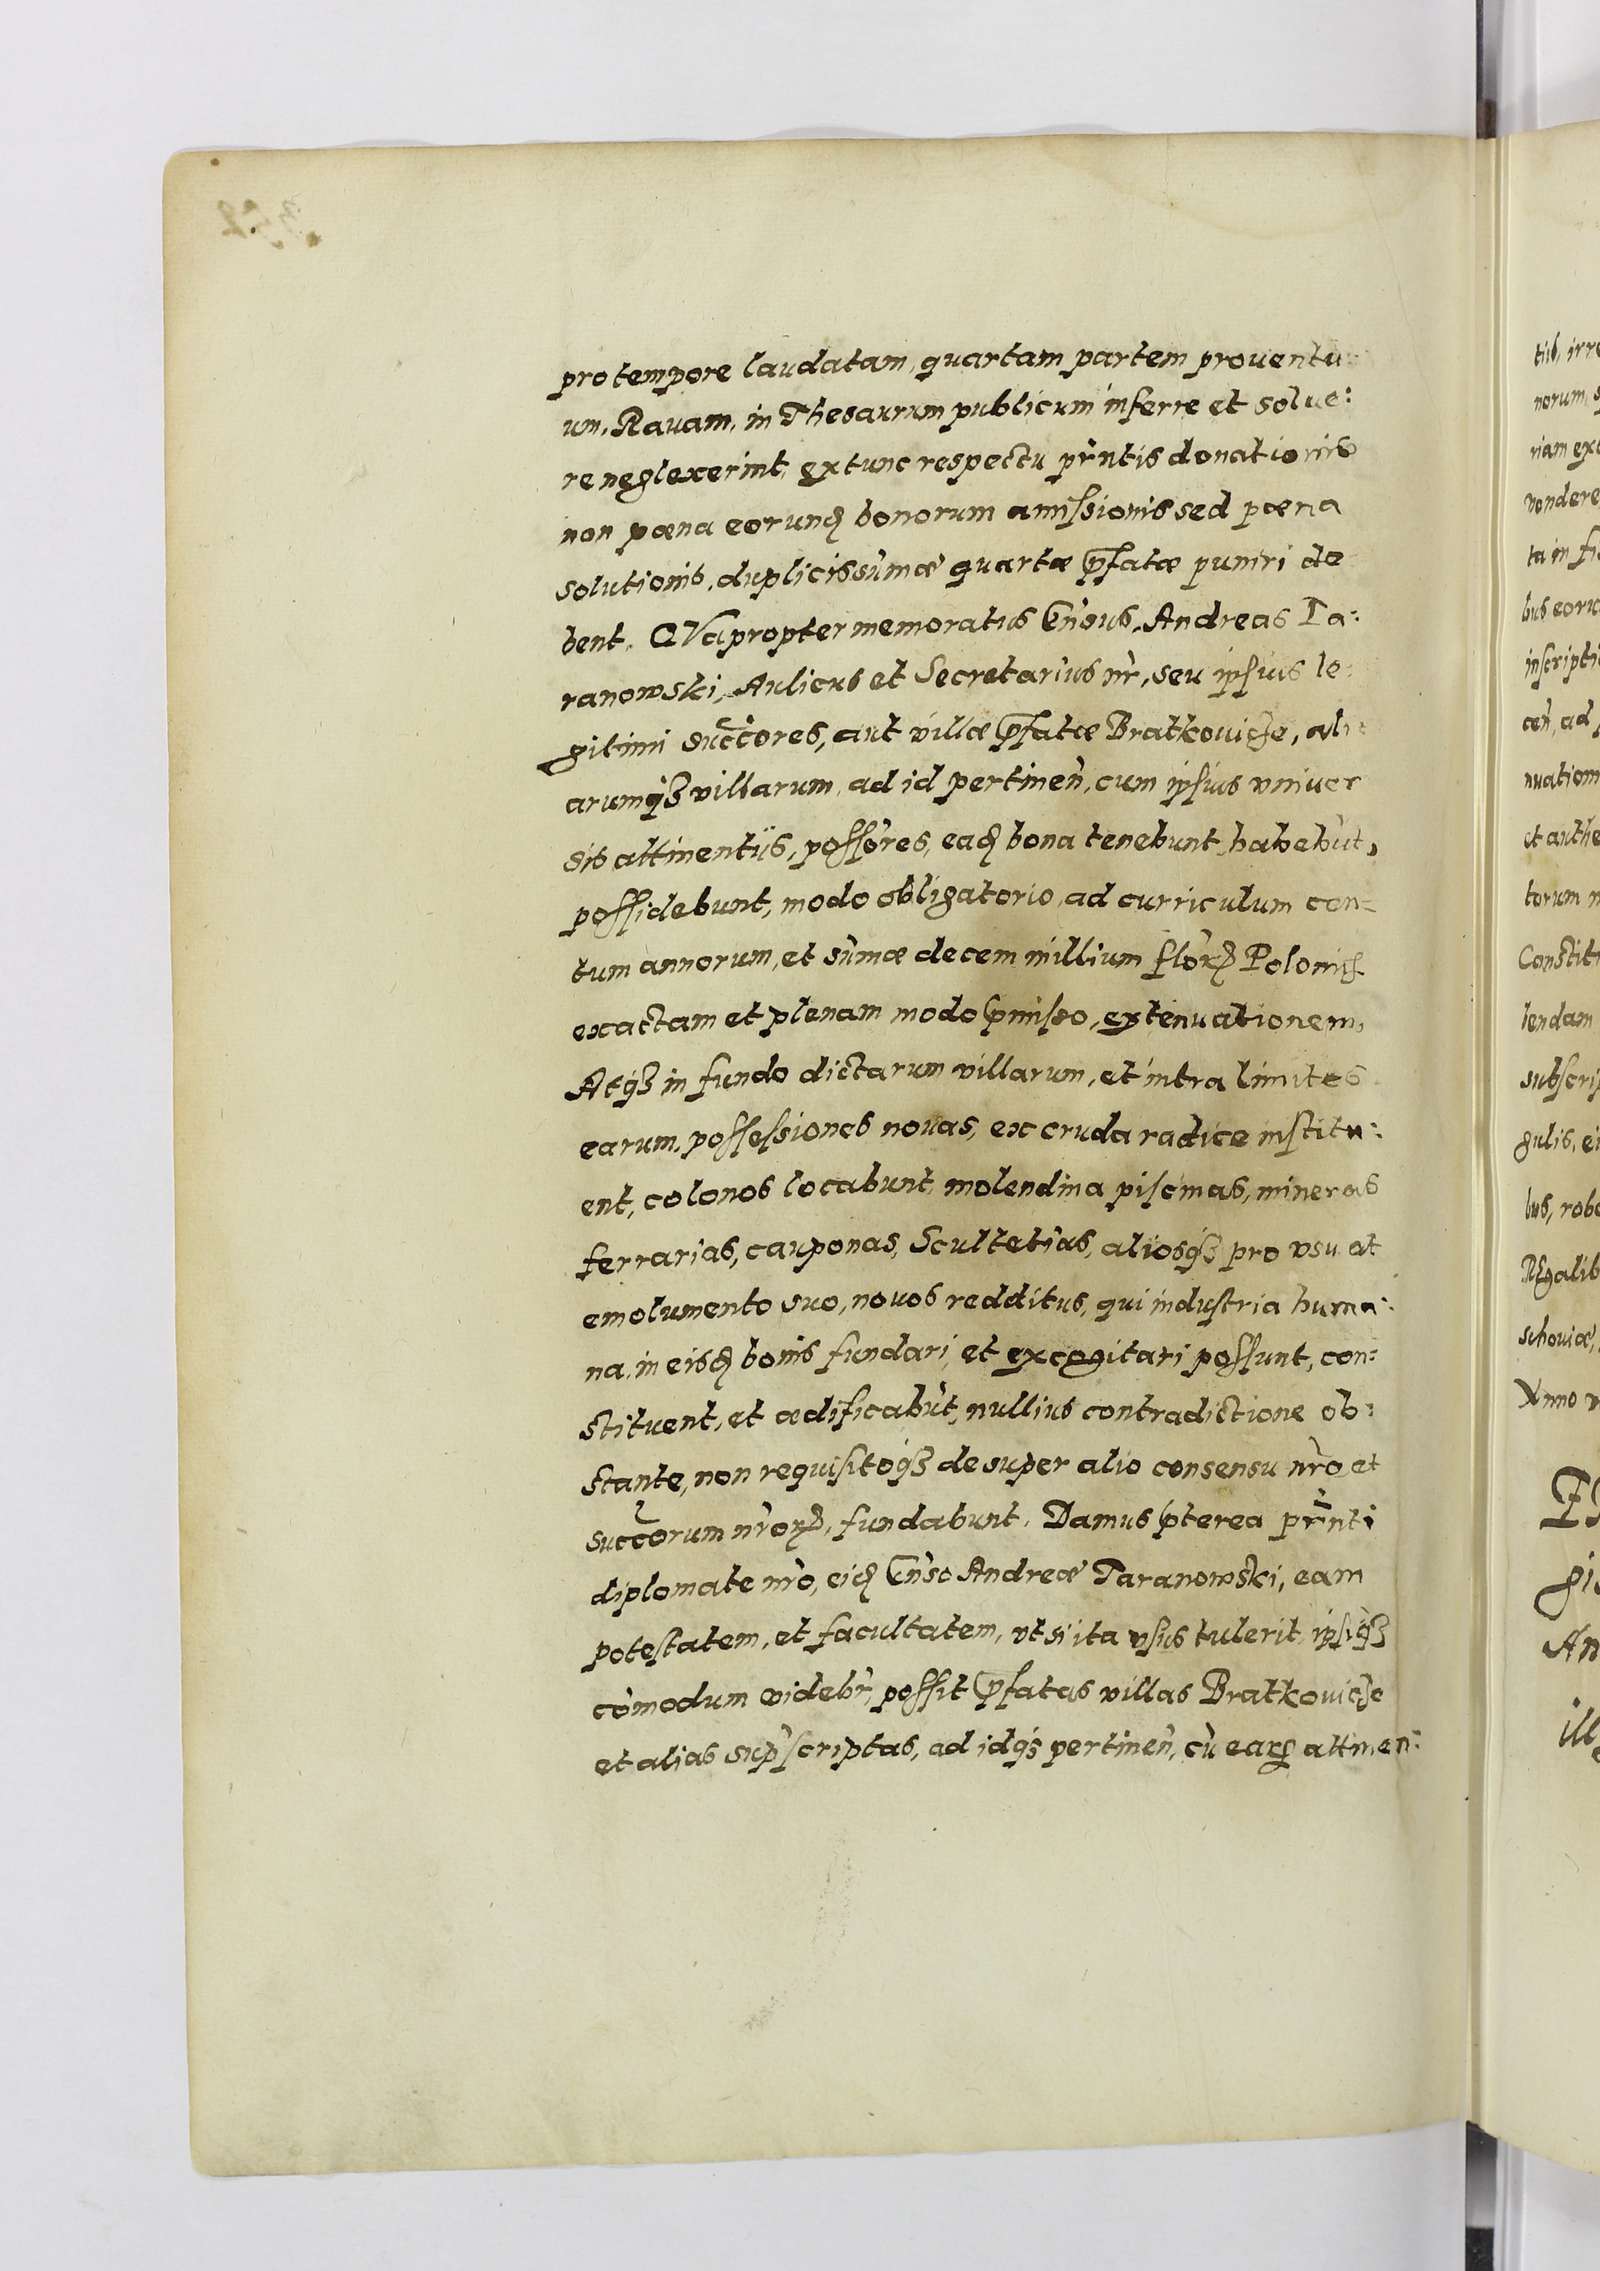 pro tempore laudatam, quartam partem prouentu:
um, Rauam, in Thesaurum publicum inferre et solue:
re neglexerint, extunc respectu pñtis donationis
non pœna eorund bonorum amissionis sed pœna
solutionis, duplicis sum̃æ quartæ p̃fatæ puniri de
bent. QVapropter memoratus Gñsus, Andreas Ta:
ranowski, Aulicus et Secretarius nr̃, seu ipsius le:
gitimi succ̃ores, aut villæ p̃fatæ Bratkouicze, ali
arumq3 villarum, ad id pertineñ, cum ipsius vniuer
sis attinentijs, possõres, ead bona tenebunt, habebũt,
possidebunt, modo obligatorio, ad curriculum cen=
tum annorum, et sum̃æ decem millium flor Polonic
exactam et plenam modo p̃misso, extenuationem,
Atq3 in fundo dictarum villarum, et intra limites
earum, possessiones nouas, ex cruda radice institu:
ent, colonos locabunt, molendina piscinas, mineras
ferrarias, cauponas, Scultetias, aliosq3 pro vsu et
emolumento suo, nouos redditus, qui industria huma:
na, in eisd bonis fundari, et excogitari possunt, con:
stituent, et ædificabũt, nullius contradictione ob:
stante, non requisitoq3 desuper alio consensu nr̃o, et
succ̃orum nr̃or, fundabunt. Damus p̃terea pñti
diplomate nr̃o, eid Gñso Andreæ Taranowski, eam
potestatem, et facultatem, vt si ita vsus tulerit, ipsiq3
com̃odum videbr̃, possit p̃fatas villas Bratkouicze
et alias sup̃scriptas, ad idq3 pertineñ, cũ ear attinen: